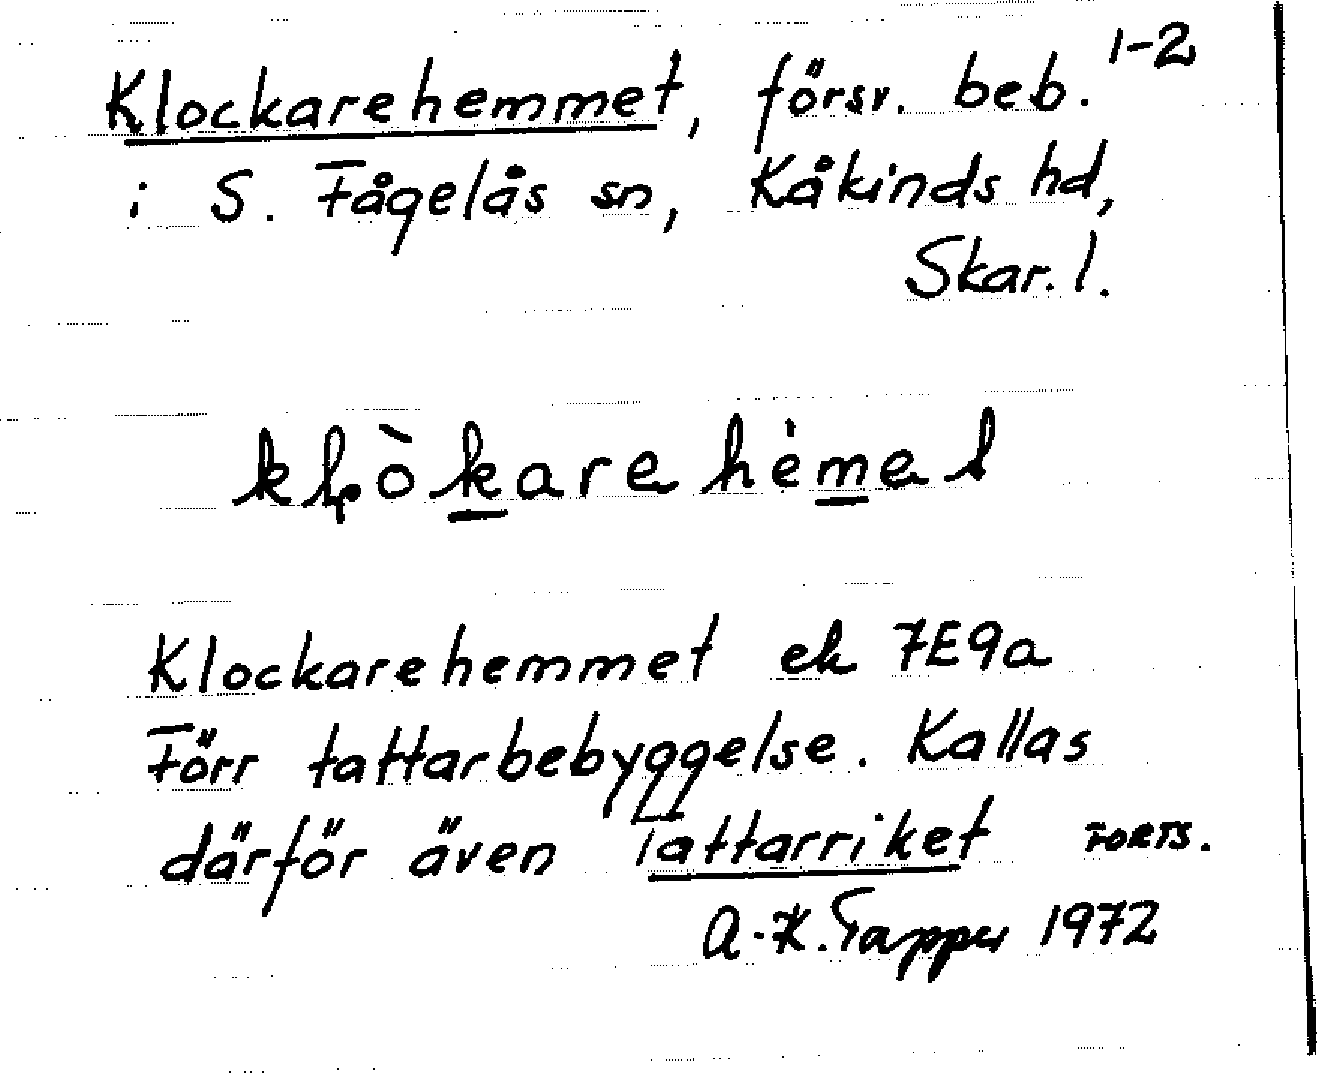 Klockarehemmet, försv. beb. 1-2
i S. Fågelås sn, Kåkinds hd,
Skar. l.
klòkarehémel
Klockarehemmet ek 7E9a
Förr tattarbebyggelse. Kallas
därför även Tattarriket FORTS.
A.-K. Tapper 1972